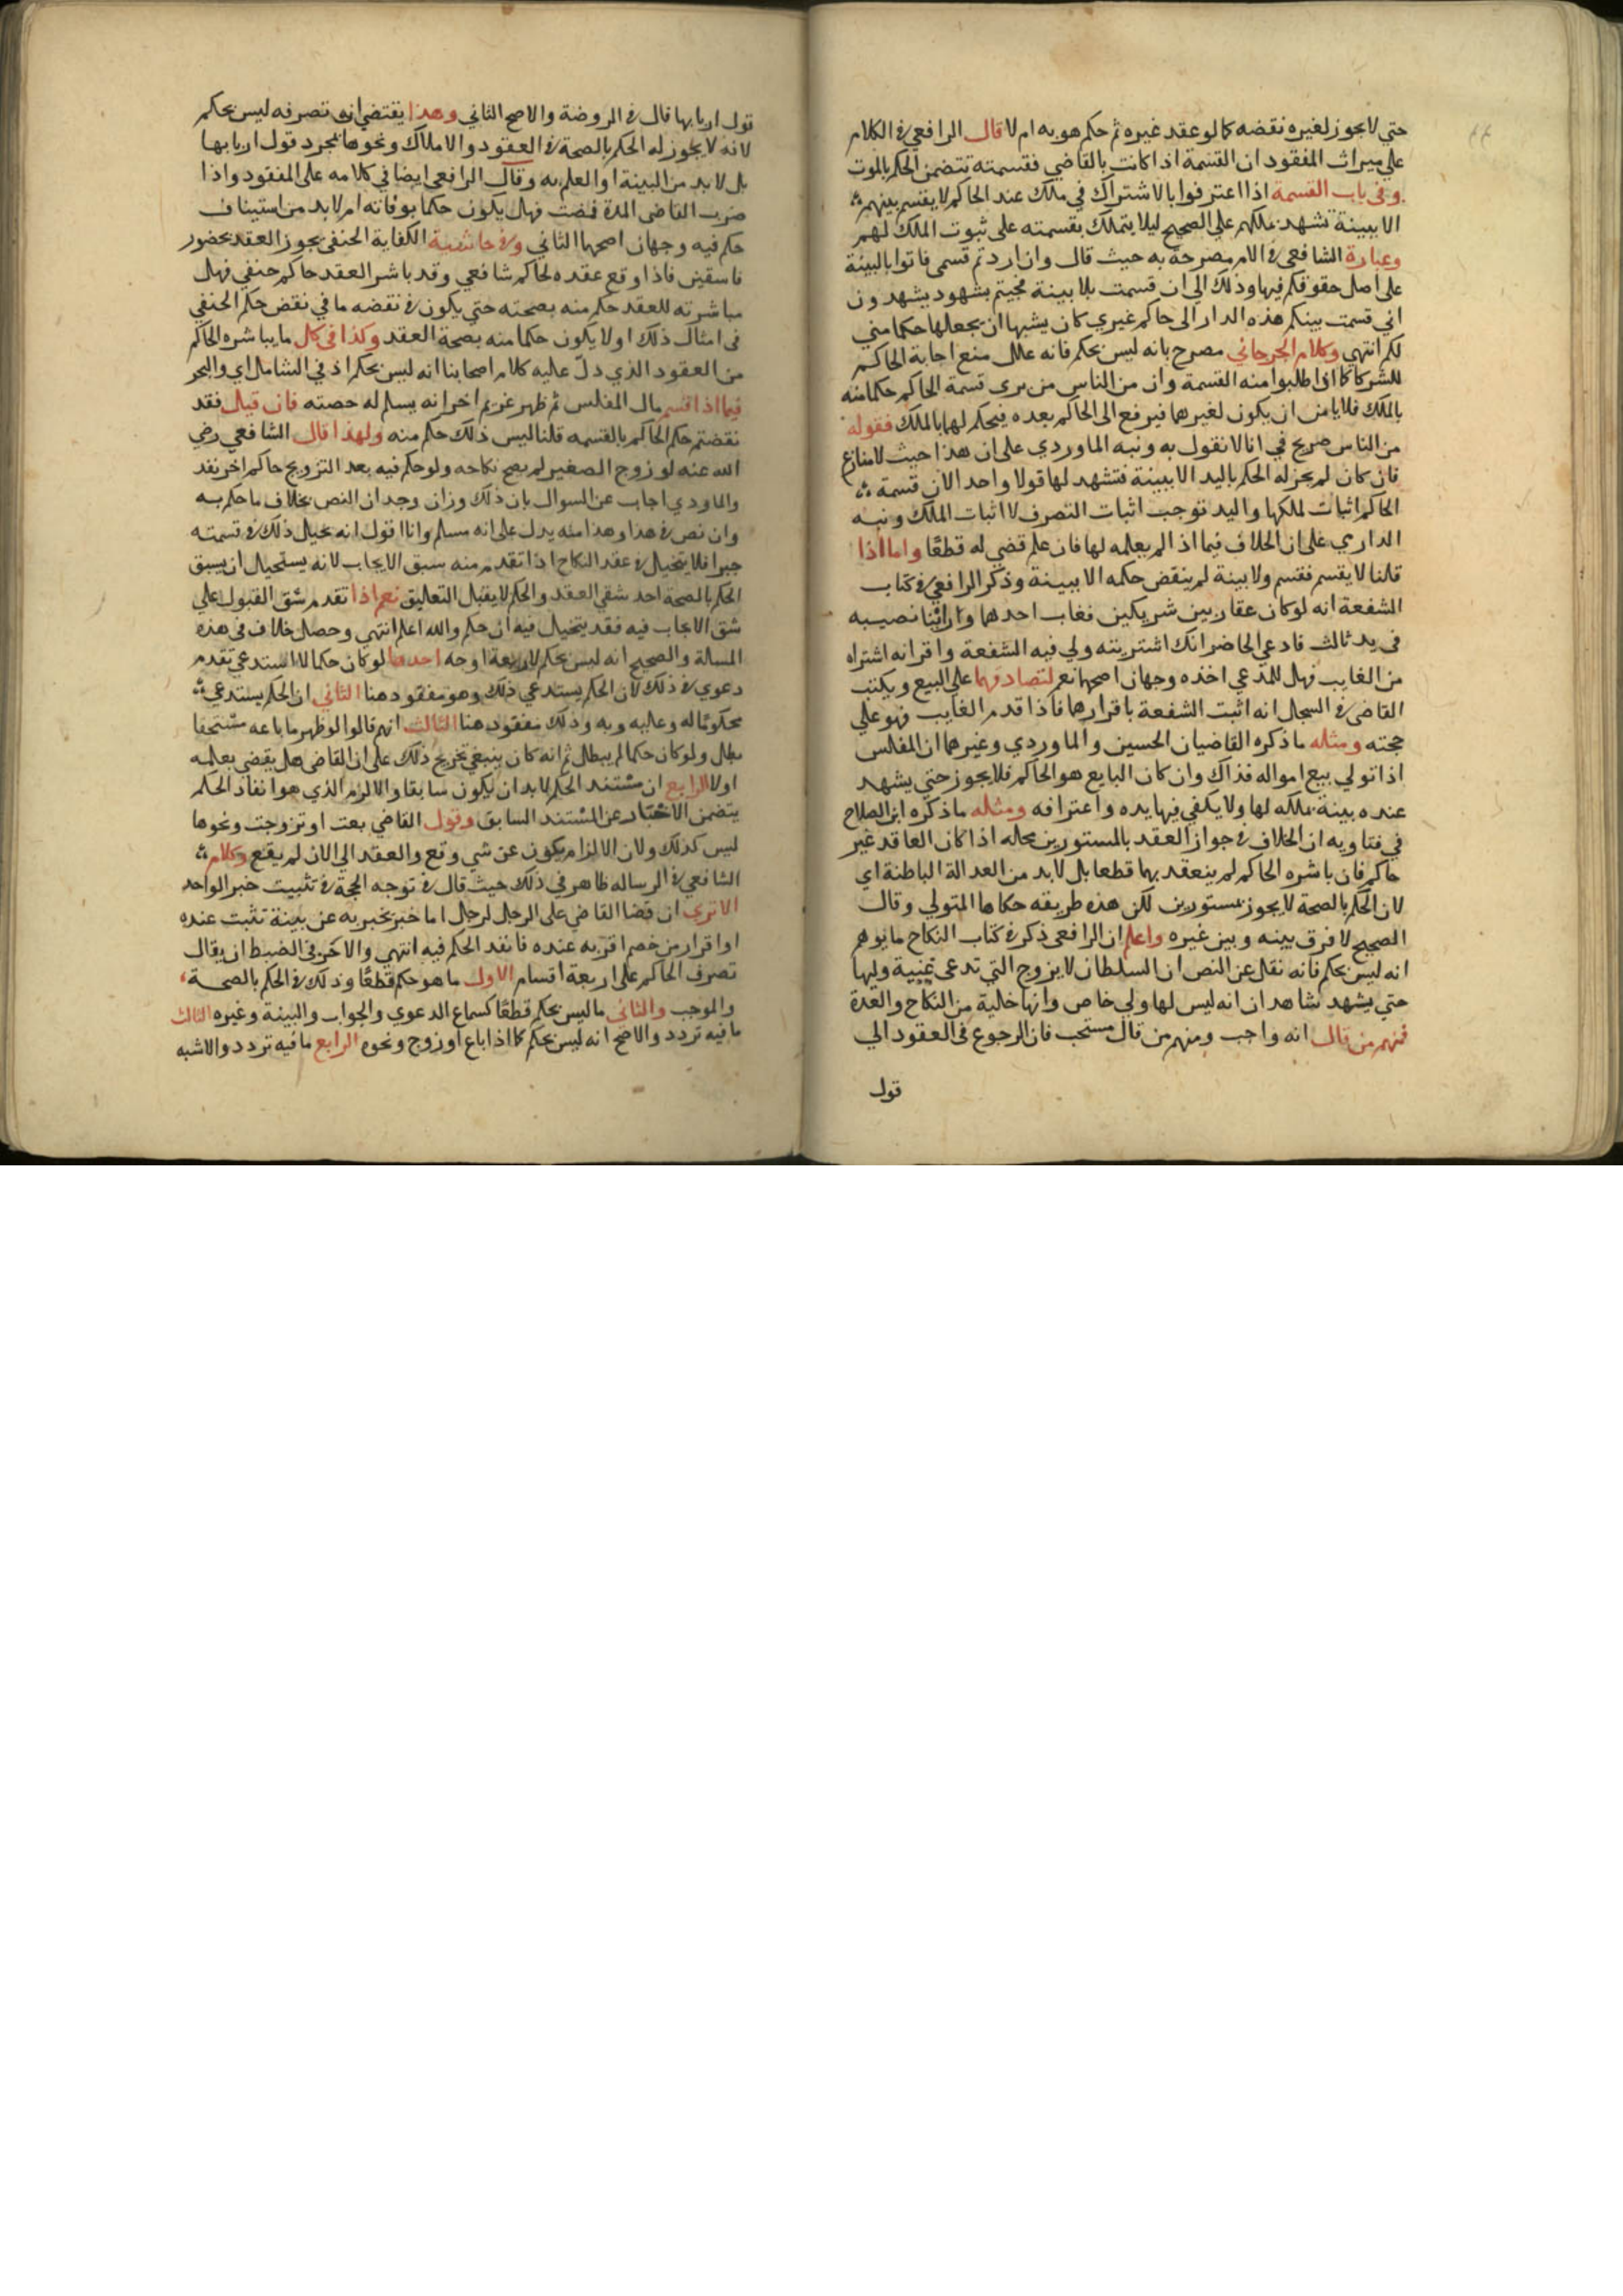 حتي لا يجوز لغيره نقضه كما لو عقد غيره ثم حكم هو به ام لا قال الرافعي في الكلام
علي ميراث المفقود ان القسمة اذا كانت بالقاضي فقسمته تتضمن الحكم بالموت
وفي باب القسمة اذا اعترفوا بالاشتراك في ملك عند الحاكم لا يقسم بينهم
الا ببينة تشهد بملكهم علي الصحيح ليلا يتملك بقسمته على ثبوت الملك لهم
وعبارة الشافعي في الام مصرحة به حيث قال وان اردتم قسمي فاتوا بالبينة
على اصل حقوقكم فيها وذلك الي ان قسمت بلا بينة فجيتم بشهود يشهدون
اني قسمت بينكم هذه الدار الى حاكم غيري كان يشبها ان يجعلها حكما مني
لكم انتهي وكلام الجرجاني مصرح بانه ليس بحكم فانه علل منع اجابة الحاكم
للشركا اذا طلبوا منه القسمة وان من الناس من يري قسمة الحاكم حكما منه
بالملك فلا يامن ان يكون لغيرهما فيرفع الى الحاكم بعده فيحكم لهما بالملك فقوله
من الناس صريح في انا لا نقول به ونبه الماوردي على ان هذا حيث لا منازع
فان كان لم يجز له الحكم باليد الا ببينة فتشهد لها قولا واحد الان قسمة
الحاكم اثبات لملكها واليد توجب اثبات التصرف لا اثبات الملك ونبه
الداري على ان الخلاف فيما اذ الم يعلمه لها فان علم قضي له قطعا واما اذا
قلنا لا يقسم فقسم ولا بينة لم ينقض حكمه الا ببينة وذكر الرافعي في كتاب
الشفعة انه لو كان عقار بين شريكين فغاب احدهما وراينا نصيبه
في يد ثالث فادعي الحاضر انك اشتريته ولي فيه الشفعة واقر انه اشتراه
من الغايب فهل للمدعي اخذه وجهان اصحهما نعم لتصادقهما علي البيع ويكتب
القاضي في السجل انه اثبت الشفعة باقرارهما فاذا قدم الغايب فهو علي
حجته ومثله ما ذكره القاضيان الحسين والماوردي وغيرهما ان المفلس
اذا تولي بيع امواله فذاك وان كان البايع هو الحاكم فلا يجوز حتي يشهد
عنده بينة بملكه لها ولا يكفي فيها يده واعترافه ومثله ما ذكره ابن الصلاح
في فتاويه ان الخلاف في جواز العقد بالمستورين محله اذا كان العاقد غير
حاكم فان باشره الحاكم لم ينعقد بهما قطعا بل لا بد من العدالة الباطنة اي
لان الحكم بالصحة لا يجوز بمستورين لكن هذه طريقه حكاها المتولي وقال
الصحيح لا فرق بينه وبين غيره واعلم ان الرافعي ذكر في كتاب النكاح ما يوهم
انه ليس بحكم فانه نقل عن النص ان السلطان لا يزوج التي تدعى غيبة وليها
حتي يشهد شاهدان انه ليس لها ولي خاص وانها خلية من النكاح والعدة
فمنهم من قال انه واجب ومنهم من قال مستحب فان الرجوع في العقود الي
قول
قول اربابها قال في الروضة والاصح الثاني وهذا يقتضي ان تصرفه ليس بحكم
لانه لا يجوز له الحكم بالصحة في العقود والاملاك ونحوها بمجرد قول اربابها
بل لا بد من البينة او العلم به وقال الرافعي ايضا في كلامه على المفقود واذا
ضرب القاضي المدة فمضت فهل يكون حكما بوفاته ام لا بد من استيناف
حكم فيه وجهان اصحهما الثاني وفي حاشية الكفاية الحنفي يجوز العقد بحضور
فاسقين فاذا وقع عقده لحاكم شافعي وقد باشر العقد حاكم حنفي فهل
مباشرته للعقد حكم منه بصحته حتي يكون في نقضه ما في نقض حكم الحنفي
في امثال ذلك او لا يكون حكما منه بصحة العقد وكذا في كل ما يباشره الحاكم
من العقود الذي دل عليه كلام اصحابنا انه ليس بحكم اذ في الشامل اي والبحر
فيما اذا قسم مال المفلس ثم ظهر غريم اخر انه يسلم له حصته فان قيل فقد
نقضتم حكم الحاكم بالقسمه قلنا ليس ذلك حكم منه ولهذا قال الشافعي رضي
الله عنه لو زوج الصغير لم يصح نكاحه ولو حكم فيه بعد التزويج حاكم اخر نفذ
والماوردي اجاب عن السوال بان ذلك وزان وجدان النص بخلاف ما حكم به
وان نص في هذا وهذا منه يدل على انه مسلم وانا اقول انه تخيل ذلك في قسمته
جبرا فلا يتخيل في عقد النكاح اذا تقدم منه سبق الايجاب لانه يستحيل ان يسبق
الحكم بالصحة احد شقي العقد والحكم لا يقبل التعليق نعم اذا تقدم شق القبول علي
شق الايجاب فيه فقد يتخيل فيه ان حكم والله اعلم انتهي وحصل خلاف في هذه
المسالة والصحيح انه ليس بحكم لاربعة اوجه احدها لو كان حكما لاستدعي تقدم
دعوي في ذلك لان الحكم يستدعي ذلك وهو مفقود هنا الثاني ان الحكم يستدعي
محكوما له وعليه وبه وذلك مفقود هنا الثالث انهم قالوا لو ظهر ما باعه مستحقا
بطل ولو كان حكما لم يبطل ثم انه كان ينبغي تخريج ذلك على ان القاضي هل يقضي بعلمه
او لا الرابع ان مستند الحكم لا بد ان يكون سابقا والالزام الذي هو انفاذ الحكم
يتضمن الاخبار عن المستند السابق وقول القاضي بعت او تزوجت ونحوها
ليس كذلك ولان الالزام يكون عن شي وقع والعقد الي الان لم يقع وكلام
الشافعي في الرساله ظاهر في ذلك حيث قال في توجه الحجة في تثبيت خبر الواحد
الا تري ان قضا القاضي على الرجل لرجل اما خبر يخبر به عن بينة تثبت عنده
او اقرار من خصم اقر به عنده فانفذ الحكم فيه انتهي والاخر في الضبط ان يقال
تصرف الحاكم على اربعة اقسام الاول ما هو حكم قطعا وذلك في الحكم بالصحة
والموجب والثاني ما ليس بحكم قطعا كسماع الدعوي والجواب والبينة وغيره الثالث
ما فيه تردد والاصح انه ليس بحكم كما اذا باع او زوج ونحوه الرابع ما فيه تردد والاشبه